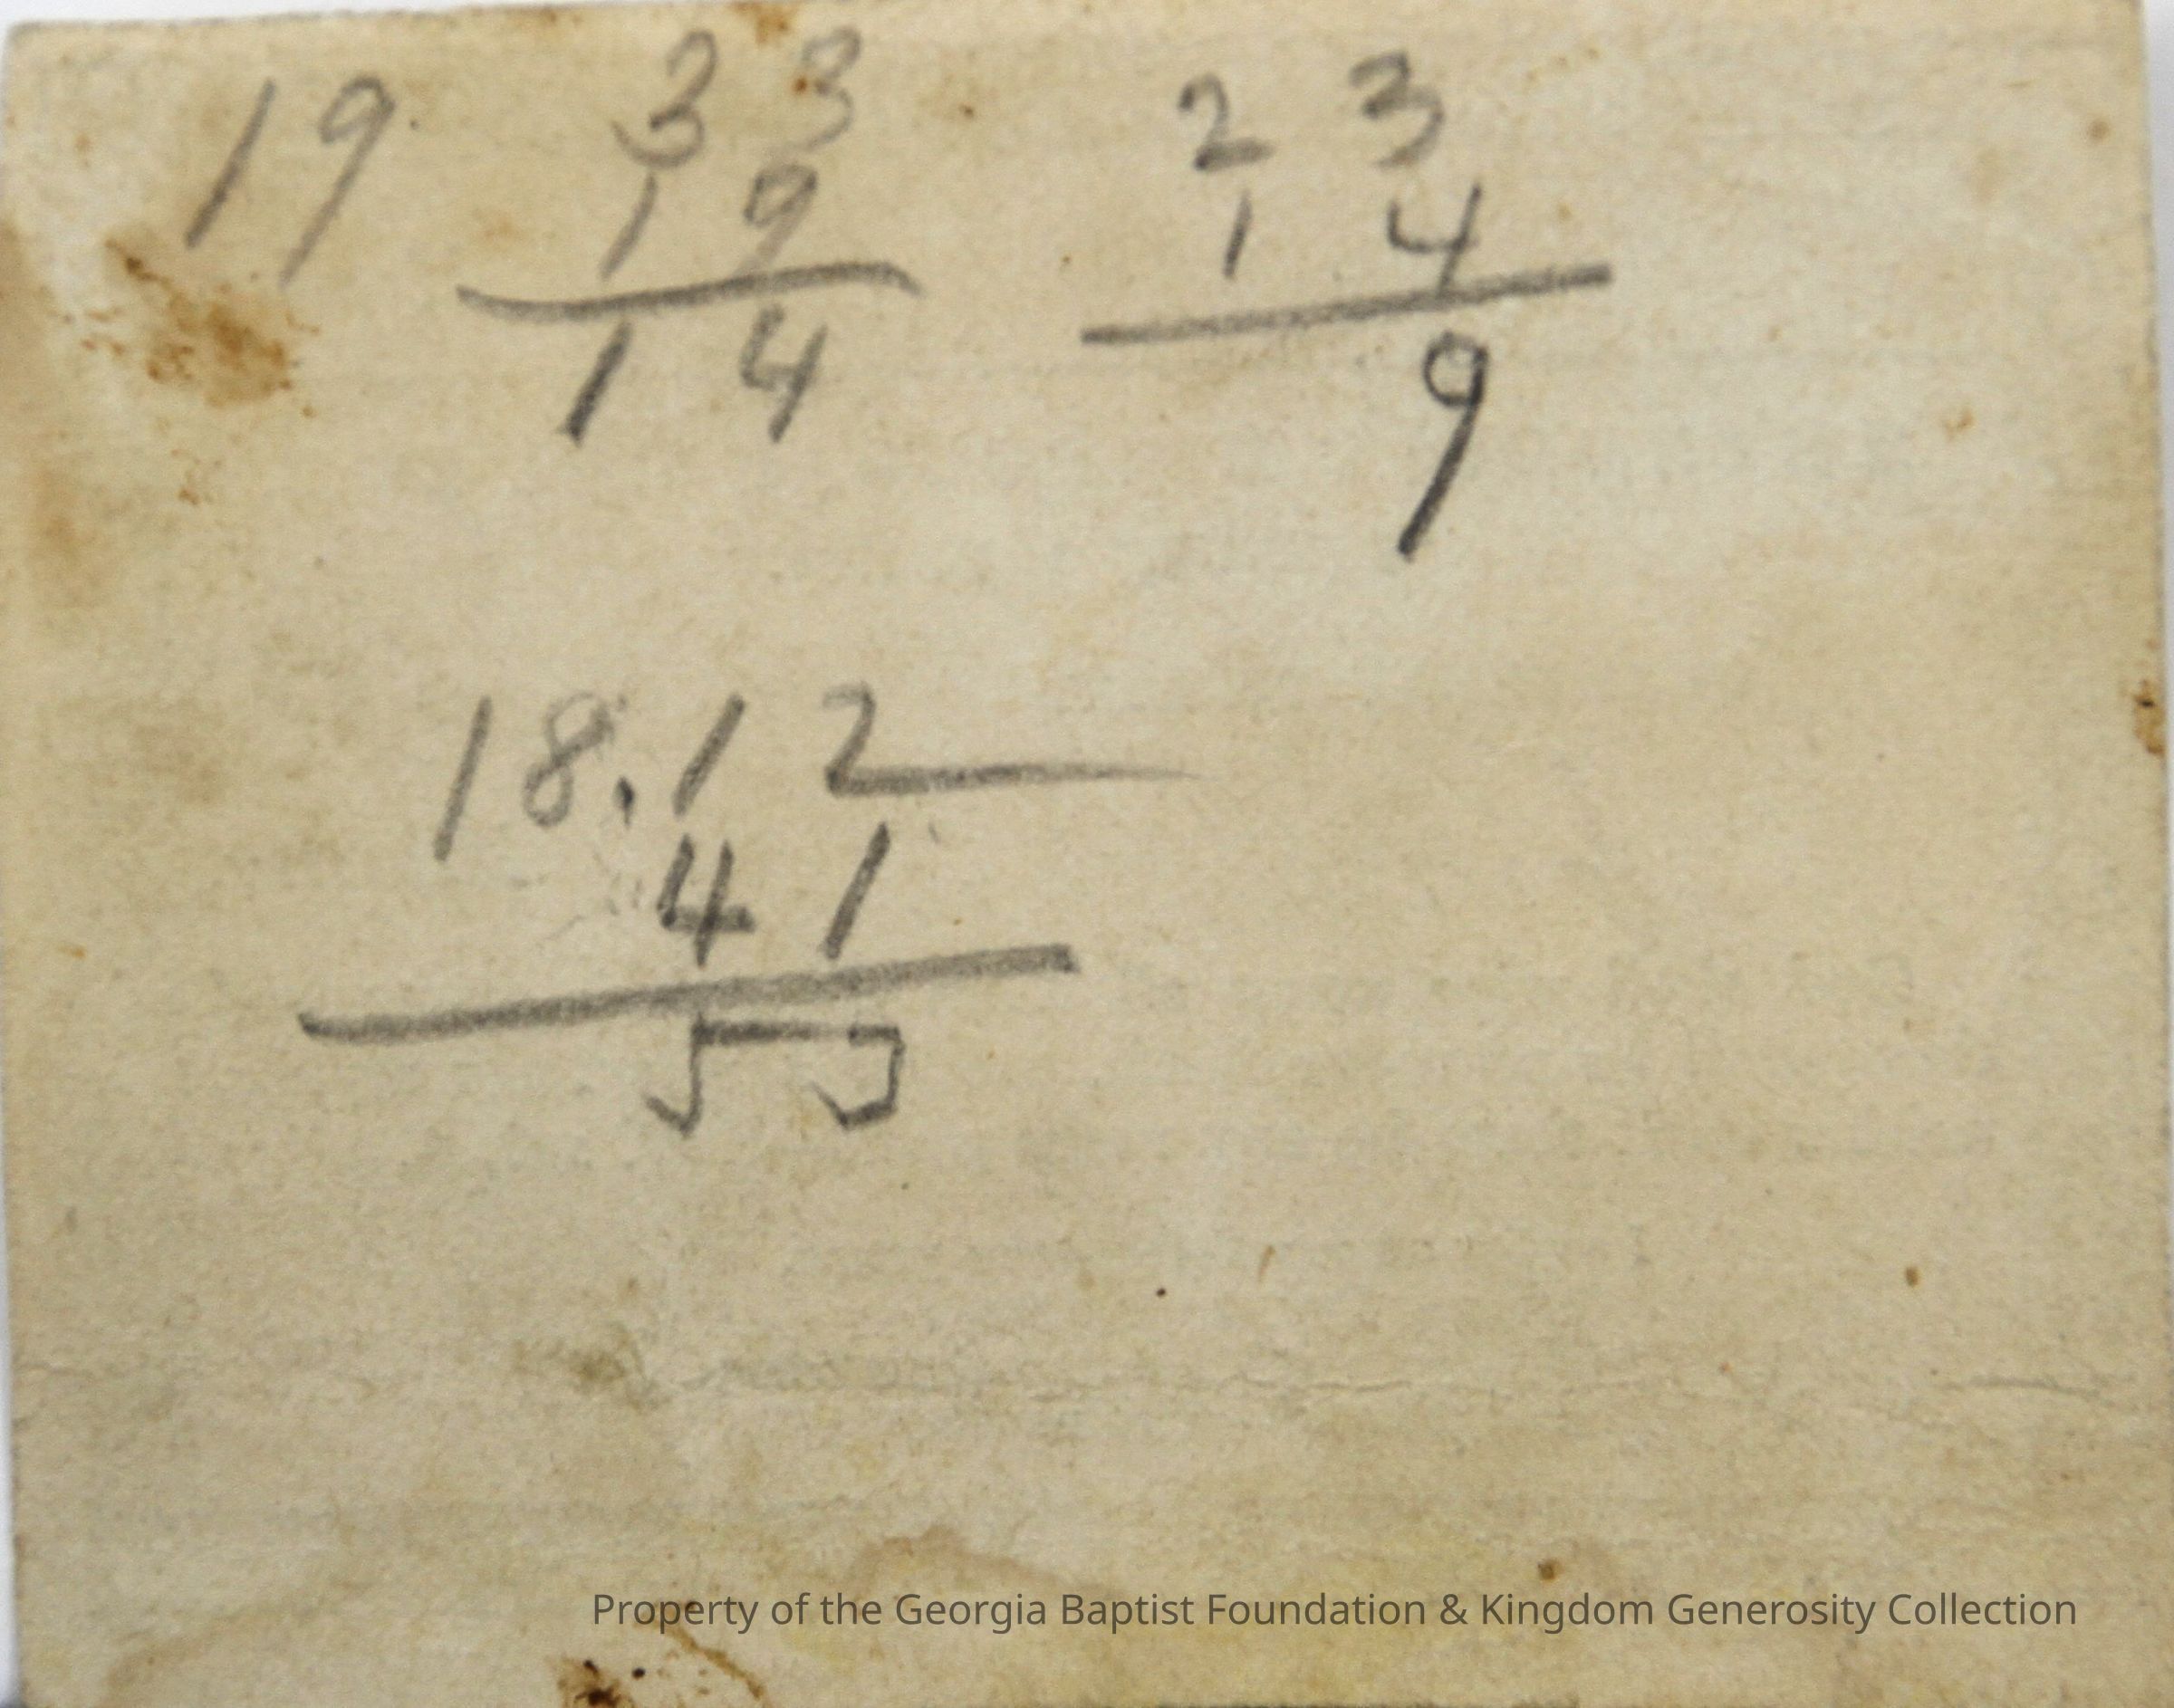 19 33 23
19 14
14 9
18.12
41
55
Property of the Georgia Baptist Foundation & Kingdom Generosity Collection